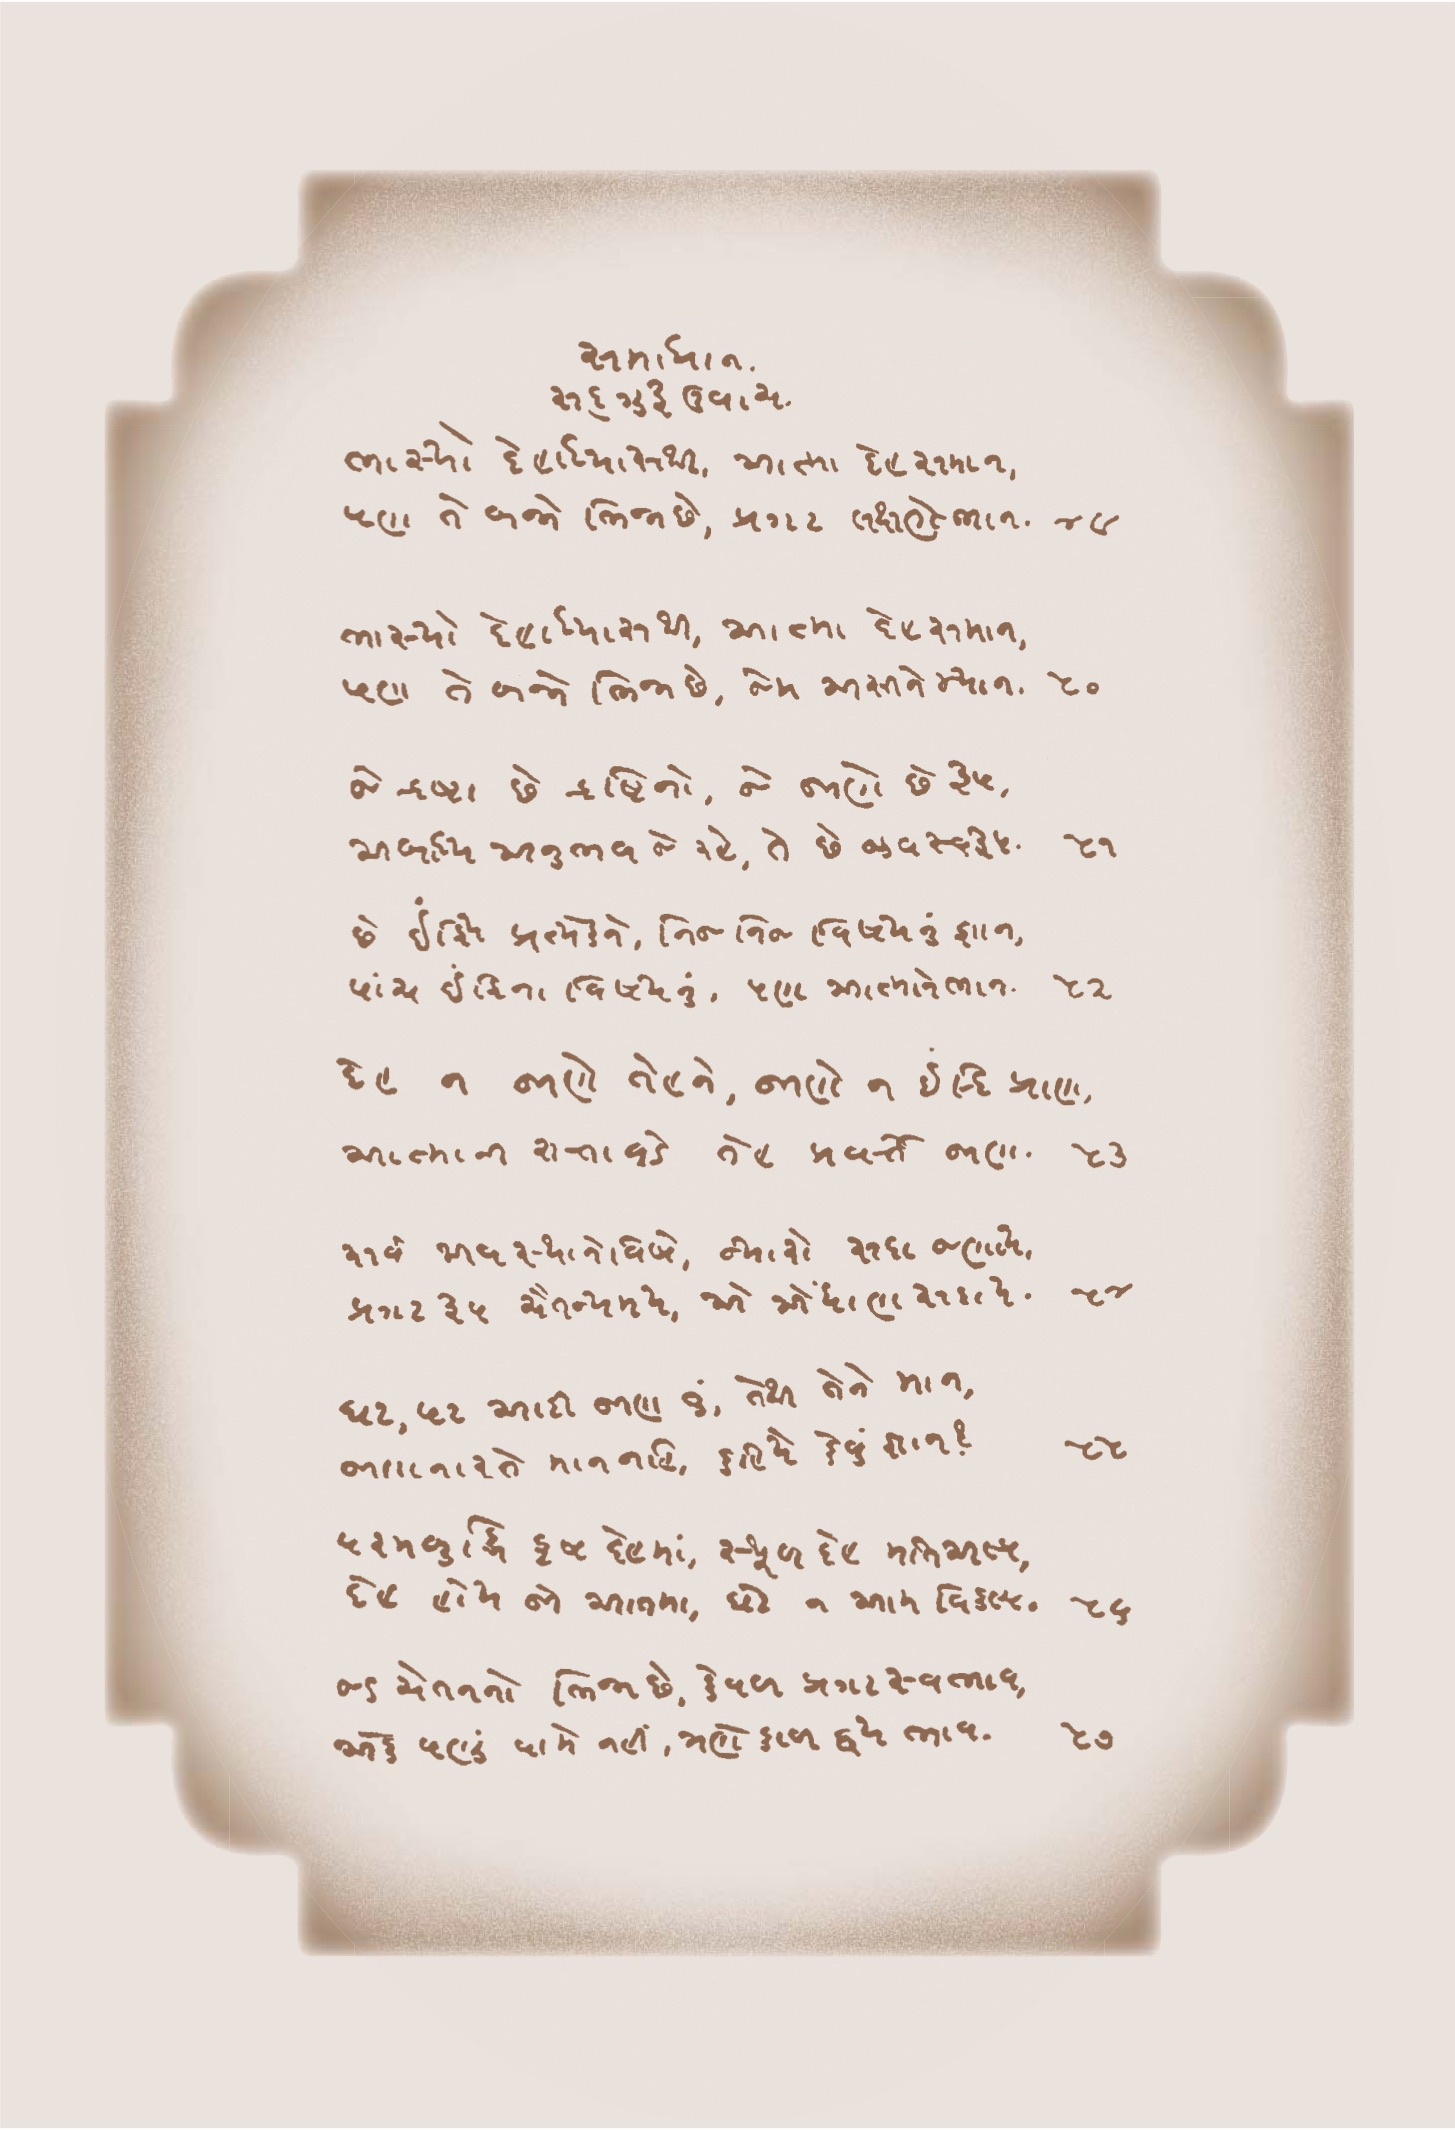 સમાધાન.
સદ્ગુરુ ઉવાચ.
ભાસ્યો દેહાધ્યાસથી, આત્મા દેહસમાન,
પણ તે બન્ને ભિન્ન છે, પ્રગટ લક્ષણે ભાન. ૪૯
ભાસ્યો દેહાધ્યાસથી, આત્મા દેહ સમાન,
પણ તે બન્ને ભિન્ન છે, જેમ અસીને મ્યાન. ૫૦
જે દ્રષ્ટા છે દ્રષ્ટિનો, જે જાણે છે રૂપ,
અબાધ્ય અનુભવ જે રહે, તે છે જીવસ્વરૂપ. ૫૧
છે ઈંદ્રિય પ્રત્યેકને, નિજ નિજ વિષયનું જ્ઞાન,
પાંચ ઈંદ્રિના વિષયનું, પણ આત્માને ભાન. ૫૨
દેહ ન જાણે તેહને, જાણે ન ઈંદ્રિ પ્રાણ,
આત્માની સત્તા વડે તેહ પ્રવર્ત્તે જાણ. ૫૩
સર્વ અવસ્થાને વિષે, ન્યારો સદા જણાય,
પ્રગટ રૂપ ચૈતન્યમય, એ એંધાણ સદાય. ૫૪
ઘટ, પટ આદી જાણ તું, તેથી તેને માન,
જાણનારને માન નહિ, કહિયે કેવું જ્ઞાન? ૫૫
પરમબુદ્ધિ કૃષ દેહમાં, સ્થૂળ દેહ મતિ અલ્પ,
દેહ હોય જો આતમા, ઘટે ન આમ વિકલ્પ. ૫૬
જડ ચેતનનો ભિન્ન છે, કેવળ પ્રગટ સ્વભાવ,
એક પણું પામે નહીં, ત્રણે કાળ દ્વય ભાવ. ૫૭